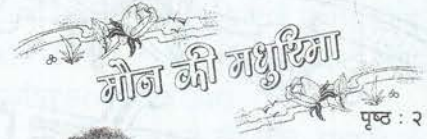 मौन की मधुरिमा
पृष्ठ : २